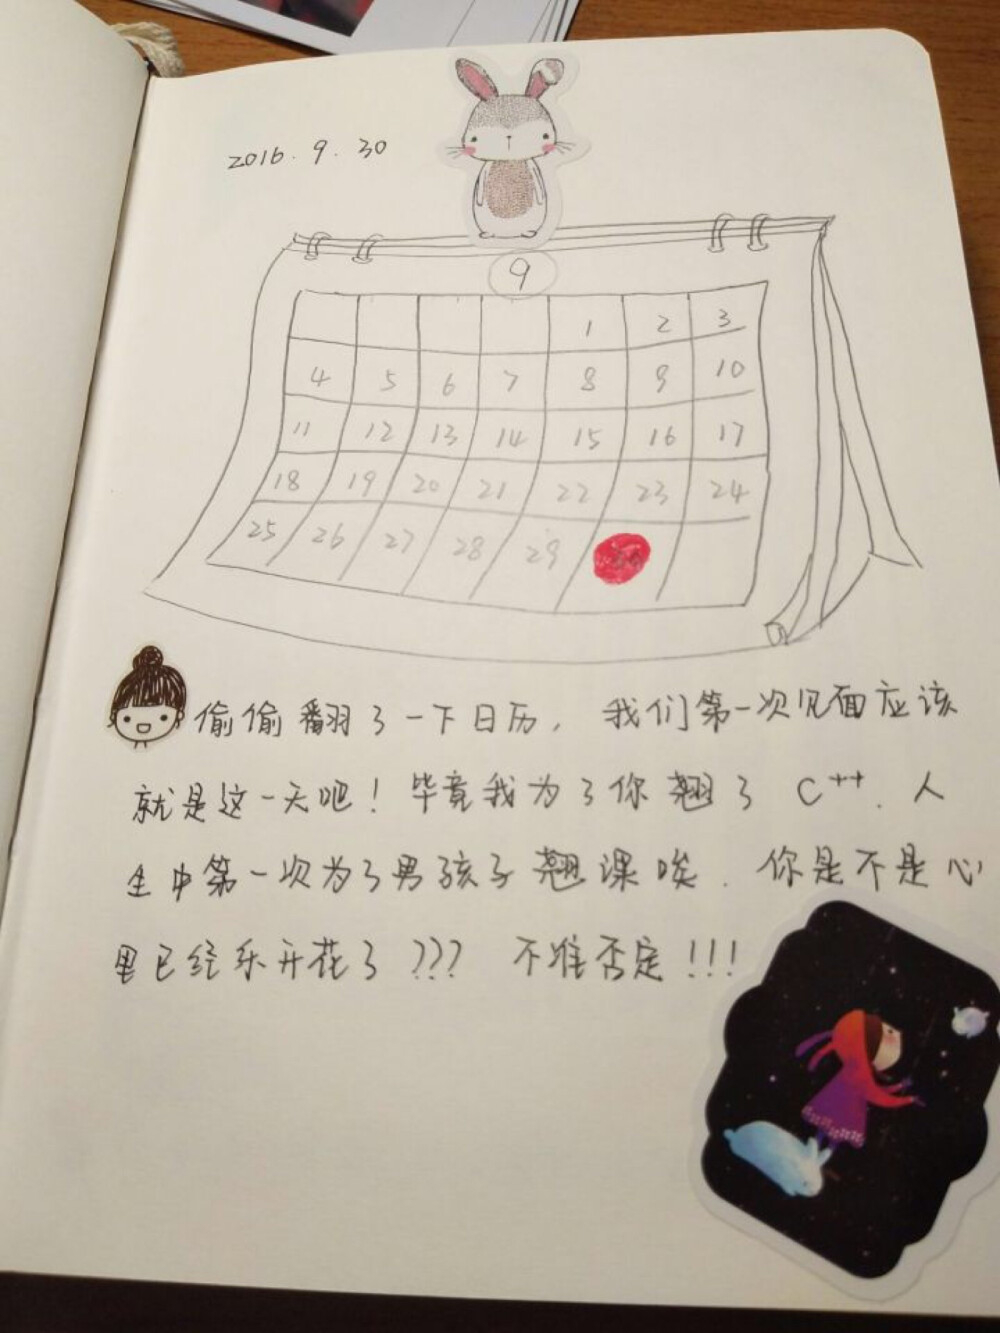 2016.9.30
9
1 2 3
4 5 6 7 8 9 10
11 12 13 14 15 16 17
18 19 20 21 22 23 24
25 26 27 28 29
偷偷翻了一下日历，我们第一次见面应该
就是这一天吧！毕竟我为了你翘了 C++．人
生中第一次为了男孩子翘课唉．你是不是心
里已经乐开花了??? 不准否定!!!